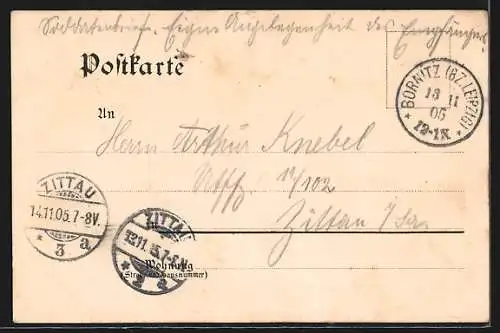 Soldatenbrief. Eigne Angelegenheit des Empfängers.
Postkarte
BORNITZ (BZ. LEIPZIG)
13 11
05
12-1N.
An
Herrn Arthur Knebel
12/102
ZITTAU
14.11.05.7-8V.
* 3 a
Zittau i/Sa.
ZITTAU
Wohnung
(Straße und Hausnummer)